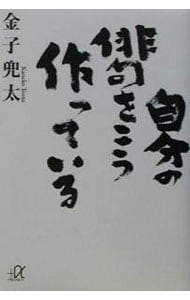 自分の
俳句をこう
作っている
金子兜太
Kaneko Tohta
+α